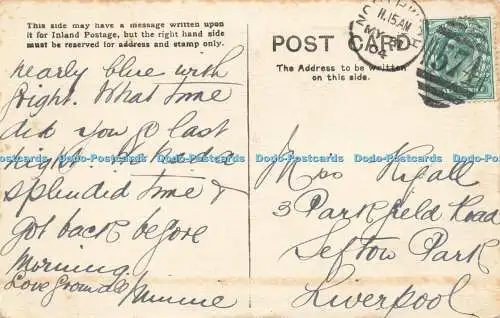 This side may have a message written upon
it for Inland Postage, but the right hand side
must be reserved for address and stamp only.
nearly blue with
fright. What time
did you go last
night. We had a
splendid time &
got back before
Morning.
Love from all
Minnie
POST CARD
The Address to be written
on this side.
11.15 AM
MY
4
574
Miss Kygall
3 Parkfield Road
Sefton Park
Liverpool
Dodo-Postcards Dodo-Postcards Dodo-Postcards Dodo-Postcards Dodo-Postcards Dodo-Postcards